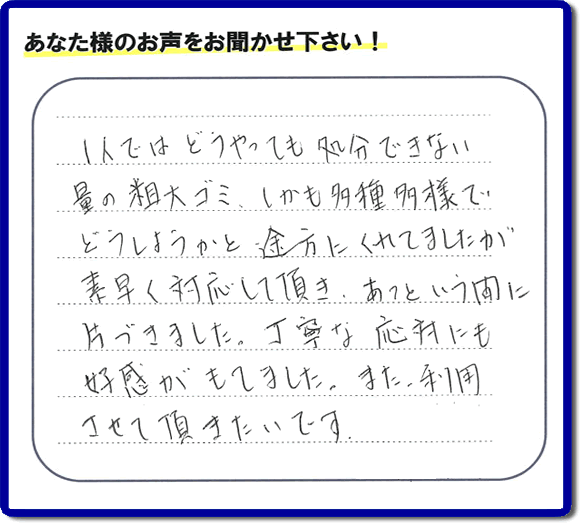 あなた様のお声をお聞かせ下さい！
1人ではどうやっても処分できない
量の粗大ゴミ、しかも多種多様で
どうしようかと途方にくれてましたが
素早く対応して頂き、あっという間に
片づきました。丁寧な応対にも
好感がもてました。また、利用
させて頂きたいです。